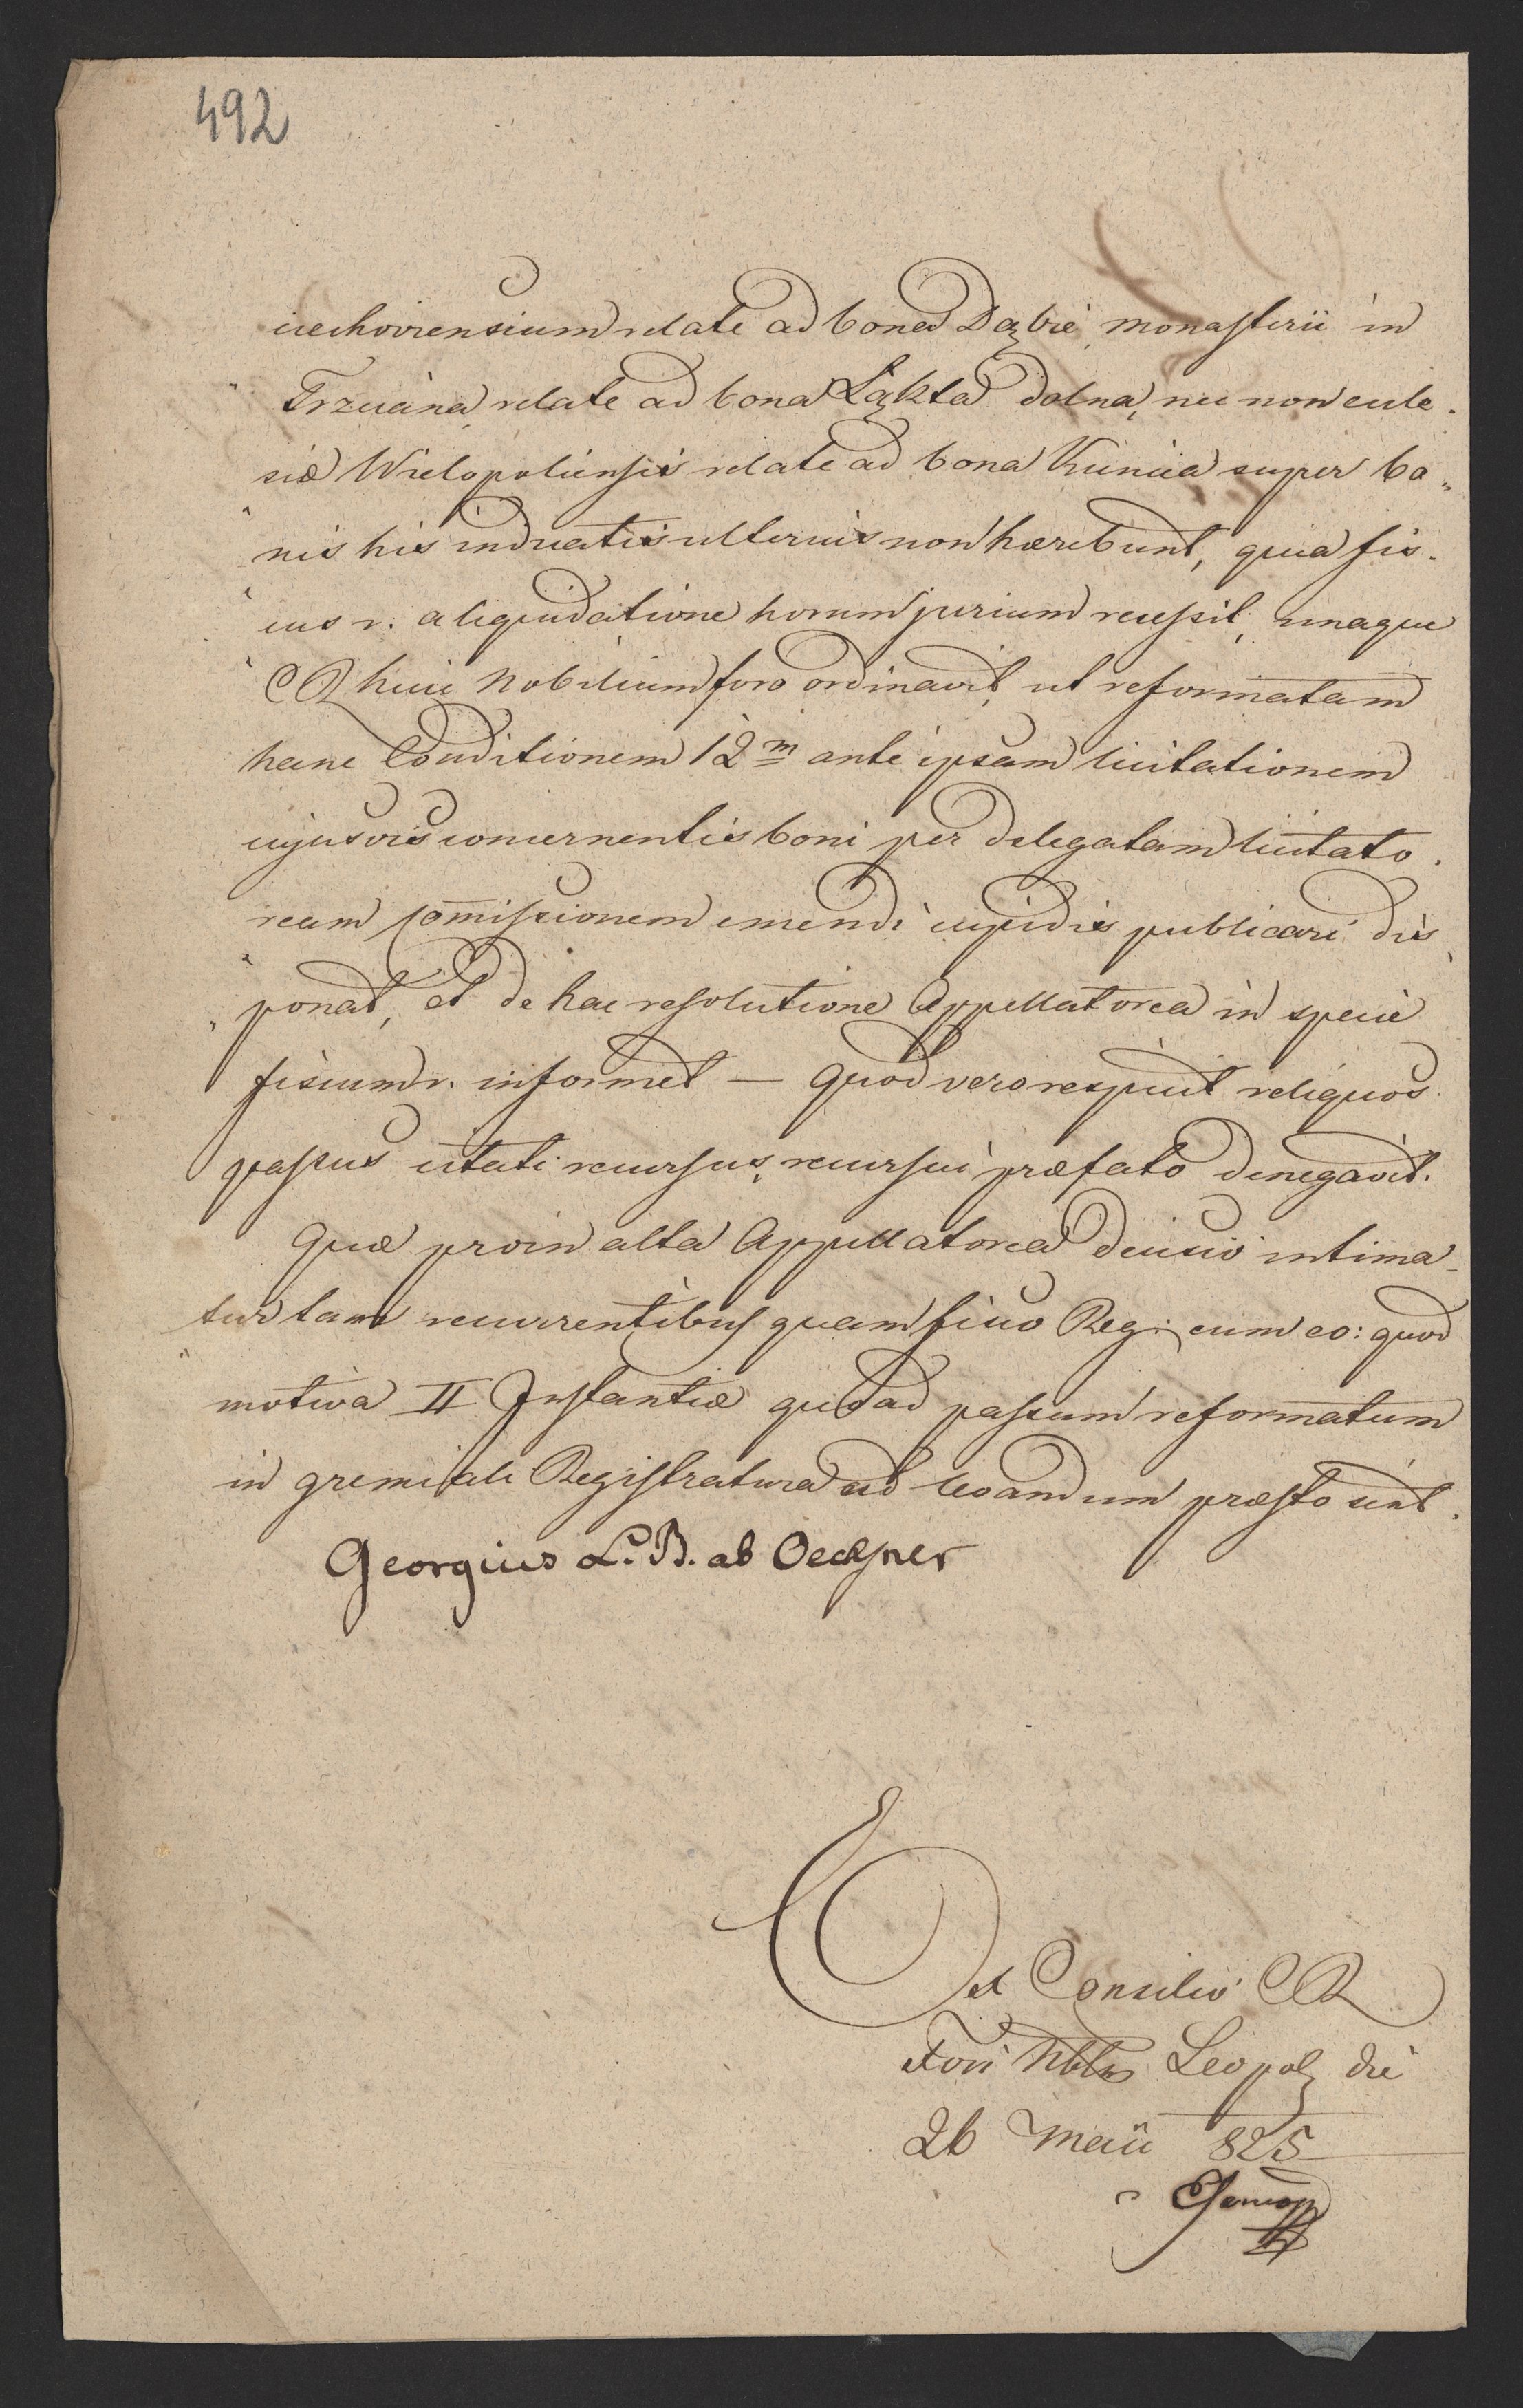 492
iechoviensium relate ad bona Dąbie, monasterii in
Trzciana relate ad bona Łąkta dolna, nec non eccle-
siæ Wielopoliensis relate ad bona Kunica super bo-
nis his inducatis ulterius non hærebunt, quia fis-
cus r. a liquidatione horum jurium recessit, unaque
CR huic Nobilium foro ordinavit, ut reformatam
hanc Conditionem 12m ante ipsam licitationem
cujusvis concernentis boni per delegatam licitato-
ream Comissionem emendi cupidis publicari dis-
ponat, et de hac resolutione Appellatorea in specie
fiscum r. informet — quod vero respicit reliquos
passus citati recursus, recursui præfato denegavit.
Quæ proin alta Appellatorea decisio intima-
tur tam recurrentibus quam fisco Reg: cum eo: quod
motiva II Instantiæ quoad passum reformatum
in gremiali Registratura ad levandum præsto sint.
Georgius L. B. ab Oechsner
Ex Consilio CR
Fori Nblm Leopol die
26 Maii 825